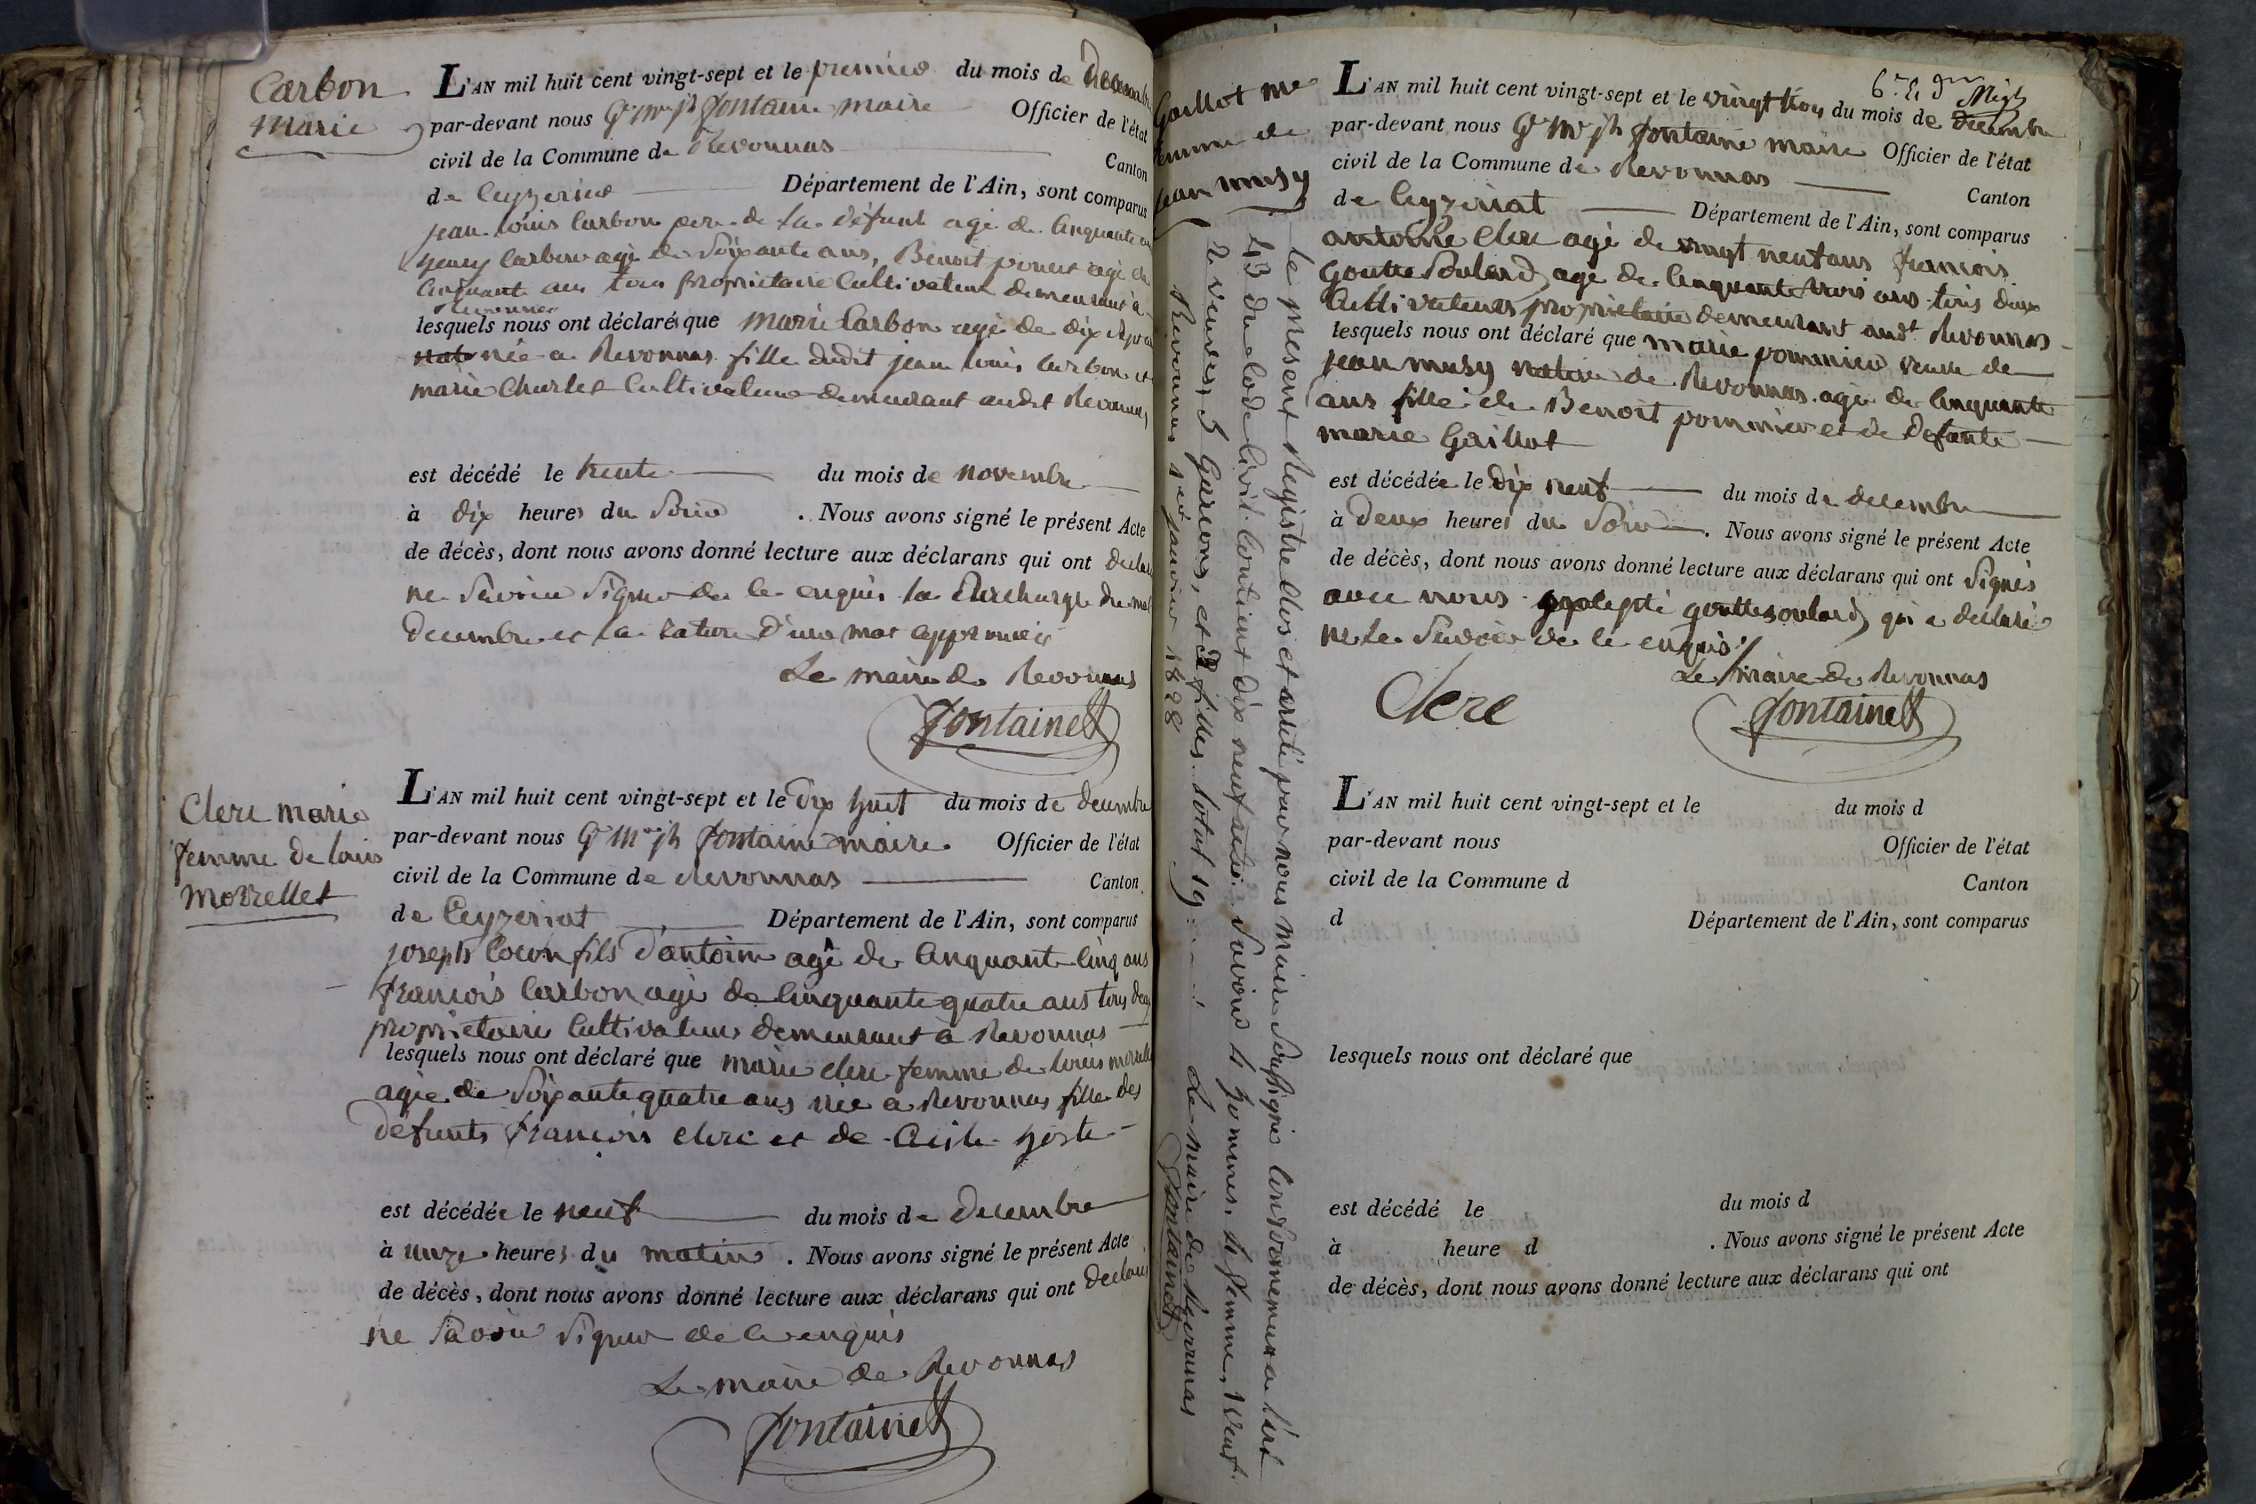 Carbon
Marie
L'AN mil huit cent vingt-sept et le premier du mois de decembre
par-devant nous Gme Mie jh fontaine maire Officier de l'état
civil de la Commune de Revonnas Canton
de Ceyzeriat Département de l'Ain, sont comparus
jean louis Carbon pere de la défunt agé de Cinquante
Carbon agé de Soixante ans, Benoit agé de
Cinquante ans tous proprietaire Cultivateur demeurant à
Revonnas
lesquels nous ont déclaré que marie Carbon agé de dix
née a Revonnas fille dudit jean louis Carbon et
marie Charlet Cultivateur demeurant audit Revonnas
est décédé le trente du mois de novembre
à dix heures du Soir . Nous avons signé le présent Acte
de décès, dont nous avons donné lecture aux déclarans qui ont
ne Savoir Signer de ce enquis la Surcharge du mot
decembre et la rature d'un mot approuvée
Le maire de Revonnas
fontaine
Clerc marie
femme de louis
Morrellet
L'AN mil huit cent vingt-sept et le dix huit du mois de decembre
par-devant nous fontaine maire Officier de l'état
civil de la Commune de Revonnas Canton
de Ceyzeriat Département de l'Ain, sont comparus
joseph Cocon fils d'antoine agé de Cinquante Cinq ans
françois Carbon agé de Cinquante quatre ans tous deux
proprietaire Cultivateur demeurant à Revonnas
lesquels nous ont déclaré que marie clerc femme de louis
agée de Soixante quatre ans née a Revonnas fille des
defunts françois clerc et de
est décédée le neuf du mois de decembre
à unze heures du matin . Nous avons signé le présent Acte
de décès, dont nous avons donné lecture aux déclarans qui ont
ne Savoir Signer de ce enquis
Le maire de Revonnas
fontaine
Gaillot me
femme de
jean musy
Le present Registre clos et arrêté par nous maire Soussigné
43 du code Civil Contient dix neuf actes Savoir 4 hommes, 4 femme, 1 veuf.
2 veuves, 5 Garcons, et 3 filles total 19
Revonnas 1er janvier 1828 Le maire de Revonnas
fontaine
L'AN mil huit cent vingt-sept et le vingt trois du mois de decembre
par-devant nous fontaine maire Officier de l'état
civil de la Commune de Revonnas Canton
de Ceyzeriat Département de l'Ain, sont comparus
antoine clerc agé de vingt neuf ans françois
Goutte Soulard agé de Cinquante trois ans tous deux
Cultivateurs proprietaire demeurant audt Revonnas
lesquels nous ont déclaré que marie pommier veuve de
jean musy native de Revonnas agée de Cinquante
ans fille de Benoit pommier et de defunte
marie Gaillot
est décédée le dix neuf du mois de decembre
à deux heures du Soir . Nous avons signé le présent Acte
de décès, dont nous avons donné lecture aux déclarans qui ont Signés
avec nous goutte soulard qui a declaré
ne le Savoir de ce enquis
Le maire de Revonnas
Clerc
fontaine
L'AN mil huit cent vingt-sept et le du mois d
par-devant nous Officier de l'état
civil de la Commune d Canton
d Département de l'Ain, sont comparus
lesquels nous ont déclaré que
est décédé le du mois d
à heure d . Nous avons signé le présent Acte
de décès, dont nous avons donné lecture aux déclarans qui ont